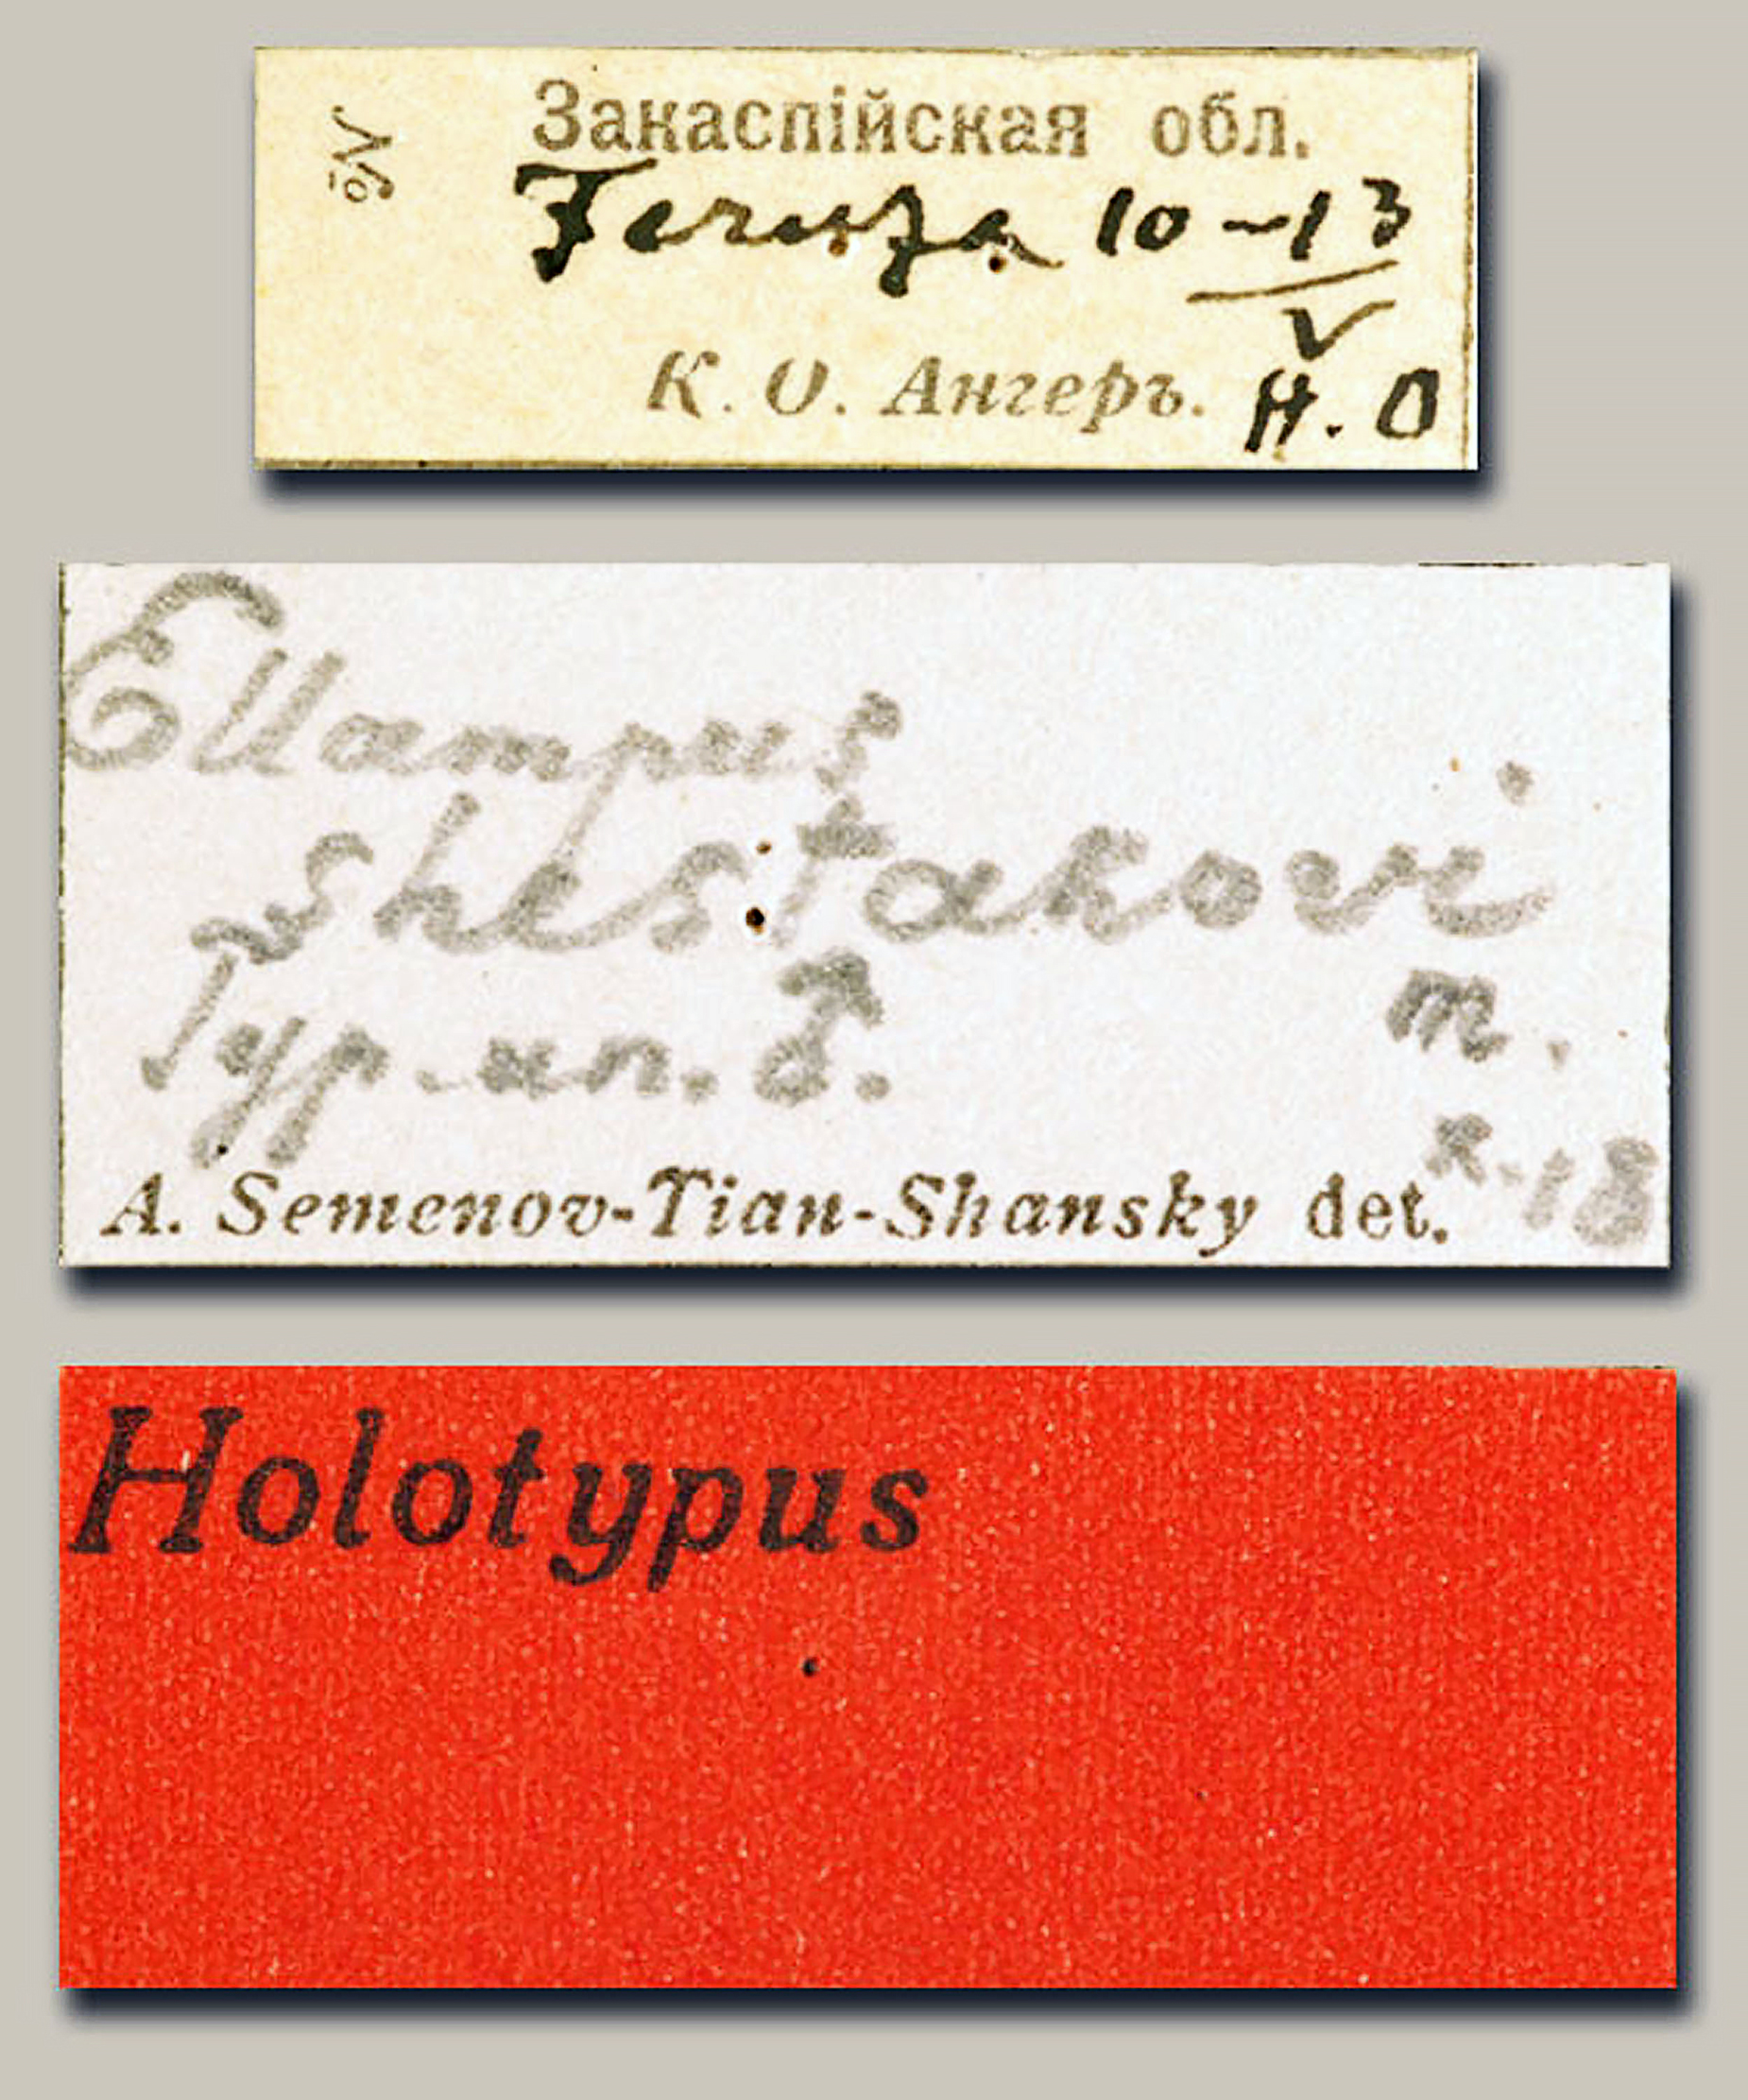 №
Закаспійская обл.
Feruza 10-13
V
К. О. Ангеръ. H. O
Ellampus
shestakovi
Typ. un. ♂. m.
x-18
A. Semenov-Tian-Shansky det.
Holotypus